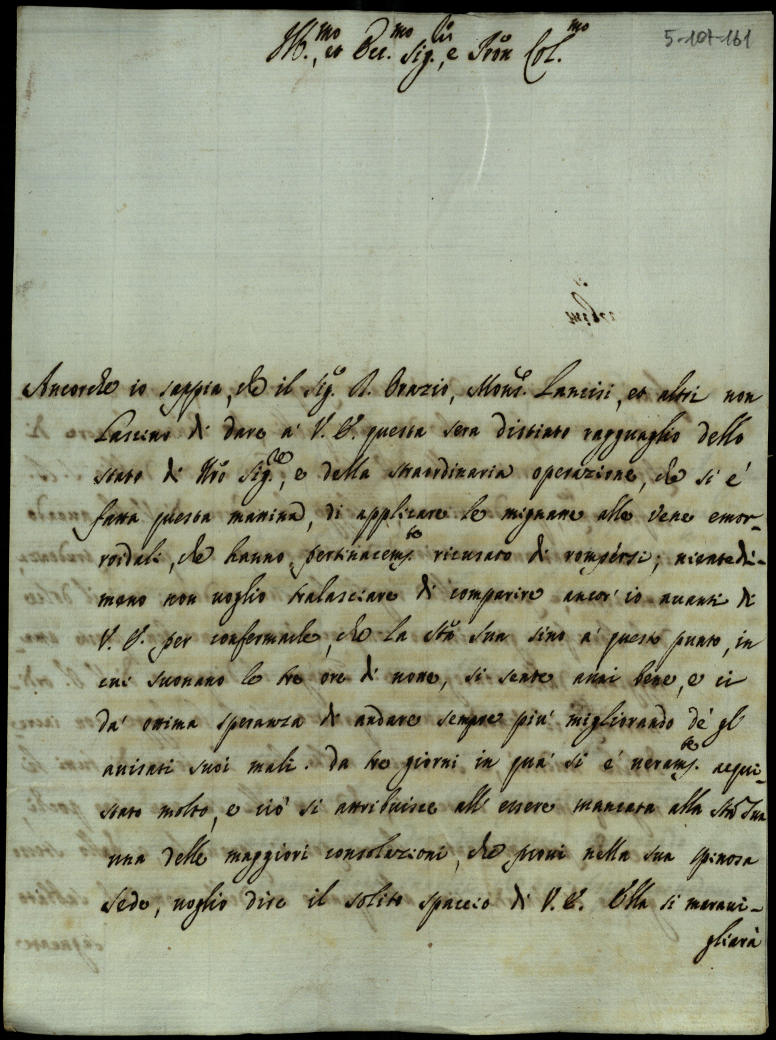 5-107-161
Ill.mo, et Ecc.mo Sig.r, e Pron Col.mo
Ancorche io sappia, che il Sig.r D. Orazio, Mons.r Lancisi, et altri non
Lascino di dare a' V. E. questa sera distinto ragguaglio dello
stato di Nrõ Sig.re, e della straordinaria operazione, che si é
fatta questa mattina, di applicare le mignatte alle vene emor-
roidali, che hanno pertinacem.te ricusato di rompersi; nientedi-
meno non voglio tralasciare di comparire ancor' io avanti di
V. E. per confermarle, che la Stà Sua sino a' questo punto, in
cui suonano le tre ore di notte, si sente assai bene, e ci
da' ottima speranza di andare sempre piu' migliorando de' gl
avisati suoi mali. Da tre giorni in qua' si é veram.te acqui-
stato molto, e ciò si attribuisce all' essere mancata alla Stà Sua
una delle maggiori consolazioni, che provi nella sua spinosa
sede, voglio dire il solito spaccio di V. E. Ella si maravi-
gliarà